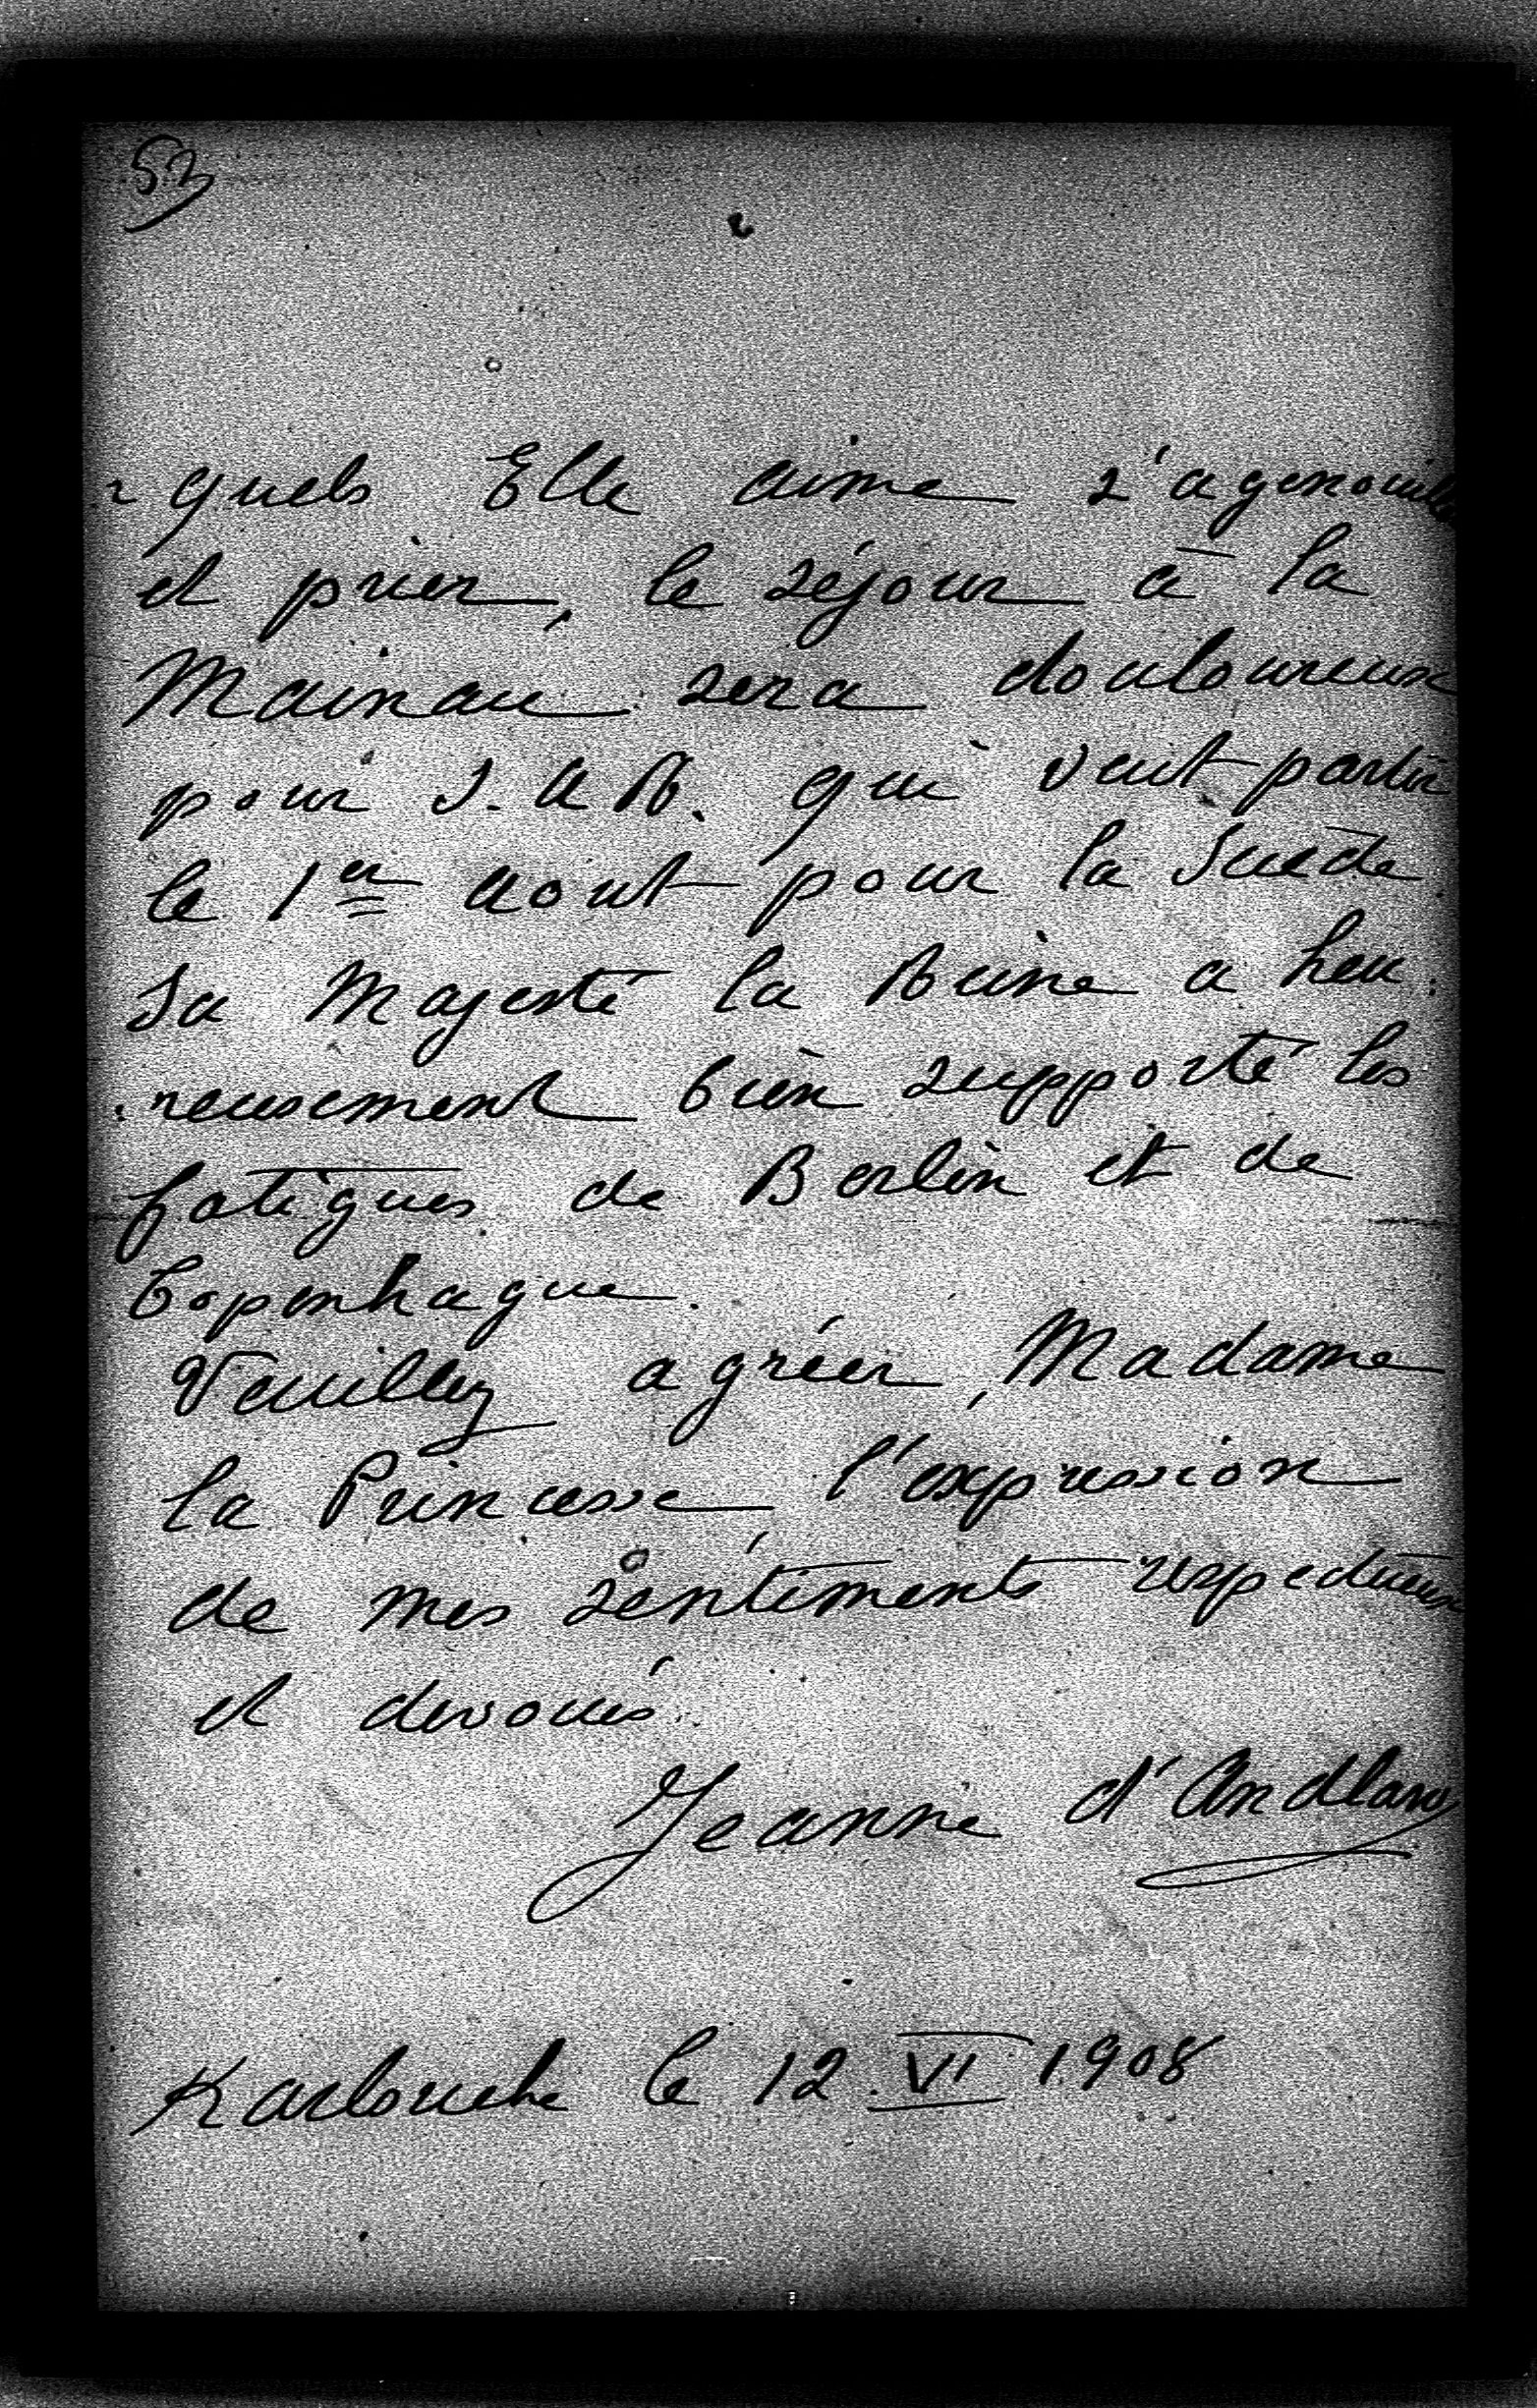 52
- quels Elle aime s'agenouiller
et prier, le séjour à la
Mainau sera douloureux
pour S. A R. qui veut partir
le 1er aout pour la Suède.
Sa Majesté la Reine a heu:
:reusement bien supporté les
fatigues de Berlin et de
Copenhague.
Veuillez agréer, Madame
la Princesse, l'expression
de mes sentiments respectueux
et devoués.
Jeanne d'Andlaw
Karlsruhe le 12. VI 1908